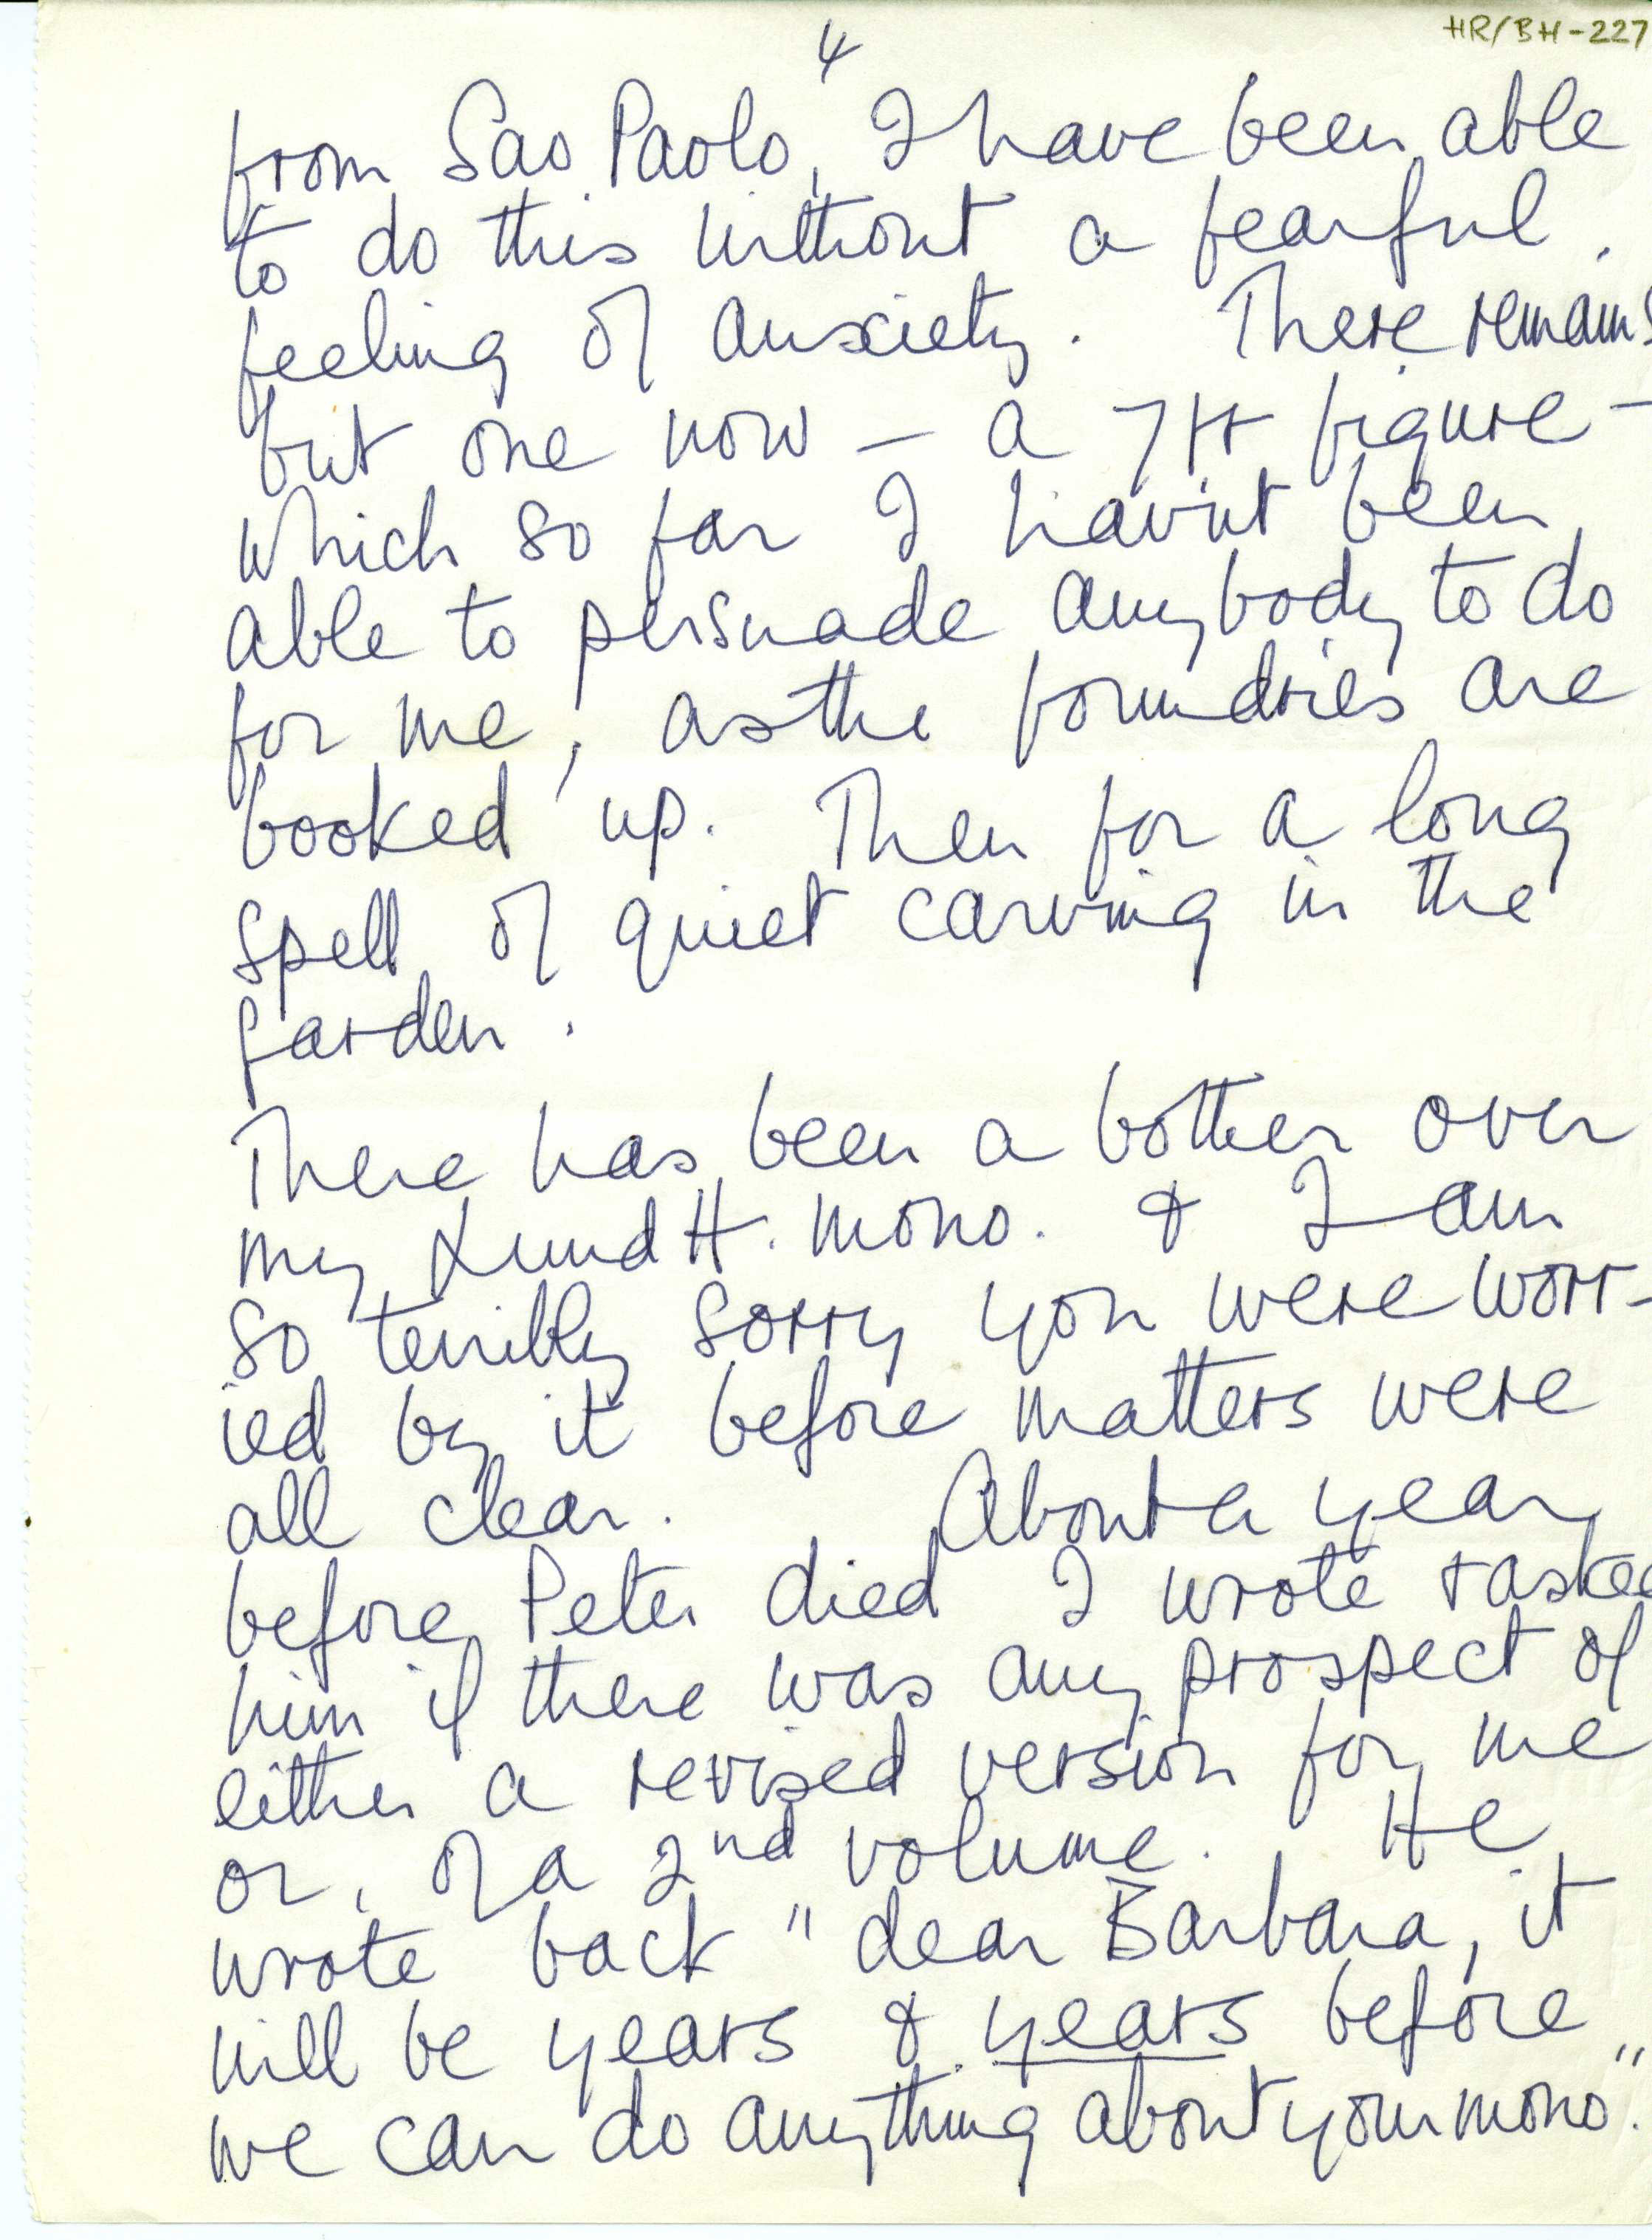 HR/BH-227
4
from Sao Paolo, I have been able
to do this without a fearful
feeling of anxiety. There remains
but one now – a 7ft figure –
which so far I hav'nt been
able to persuade anybody to do
for me, as the foundries are
booked up. Then for a long
spell of quiet carving in the
garden.
There has been a bother over
my Lund H. mono. & I am
so terribly sorry you were worr-
ied by it before matters were
all clear. About a year
before Peter died I wrote & asked
him if there was any prospect of
either a revised version for me
or, of a 2nd volume. He
wrote back "dear Barbara, it
will be years & years before
we can do anything about your mono".